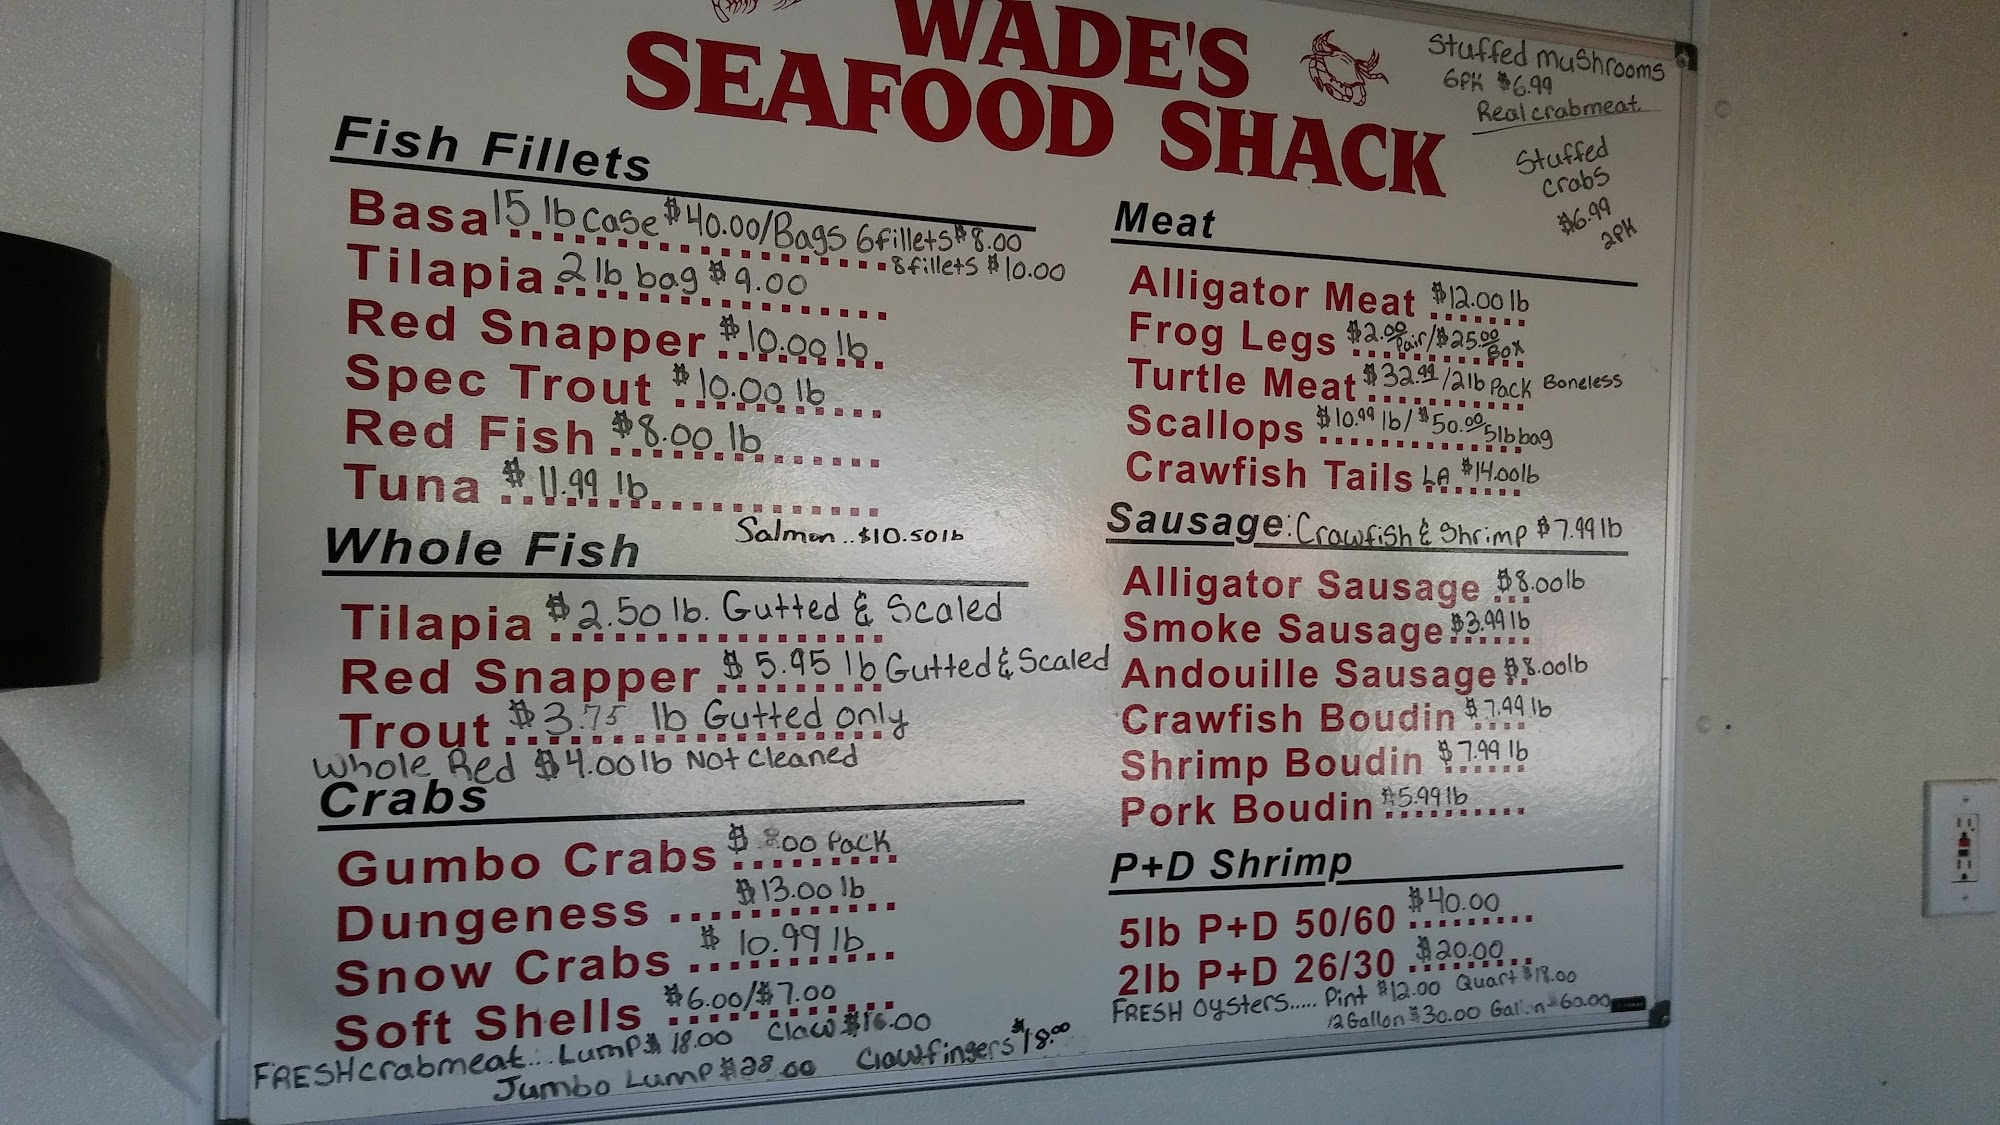 WADE'S
SEAFOOD SHACK
Stuffed Mushrooms
6PK $6.99
Real crabmeat
Stuffed
crabs
$6.99
2PK
Fish Fillets
Basa 15 lb case $40.00/Bags 6 fillets $8.00
8 fillets $10.00
Tilapia 2 lb bag $9.00
Red Snapper $10.00 lb
Spec Trout $10.00 lb
Red Fish $8.00 lb
Tuna $11.99 lb
Salmon .. $10.50 lb
Whole Fish
Tilapia $2.50 lb. Gutted & Scaled
Red Snapper $5.95 lb Gutted & Scaled
Trout $3.75 lb Gutted only
Whole Red $4.00 lb Not Cleaned
Crabs
Gumbo Crabs $ .00 Pack
Dungeness $13.00 lb
Snow Crabs $10.99 lb
Soft Shells $6.00/$7.00
FRESH crabmeat... Lump $18.00 Claw $16.00
Jumbo Lump $28.00 Clawfingers $18.00
Meat
Alligator Meat $12.00 lb
Frog Legs $2.00 Pair/$25.00 Box
Turtle Meat $32.99/2lb Pack Boneless
Scallops $10.99 lb/$50.00 5lb bag
Crawfish Tails LA $14.00 lb
Sausage: Crawfish & Shrimp $7.99 lb
Alligator Sausage $8.00 lb
Smoke Sausage $3.99 lb
Andouille Sausage $8.00 lb
Crawfish Boudin $7.99 lb
Shrimp Boudin $7.99 lb
Pork Boudin $5.99 lb
P+D Shrimp
5lb P+D 50/60 $40.00
2lb P+D 26/30 $20.00
FRESH Oysters..... Pint $12.00 Quart $18.00
1/2 Gallon $30.00 Gallon $60.00